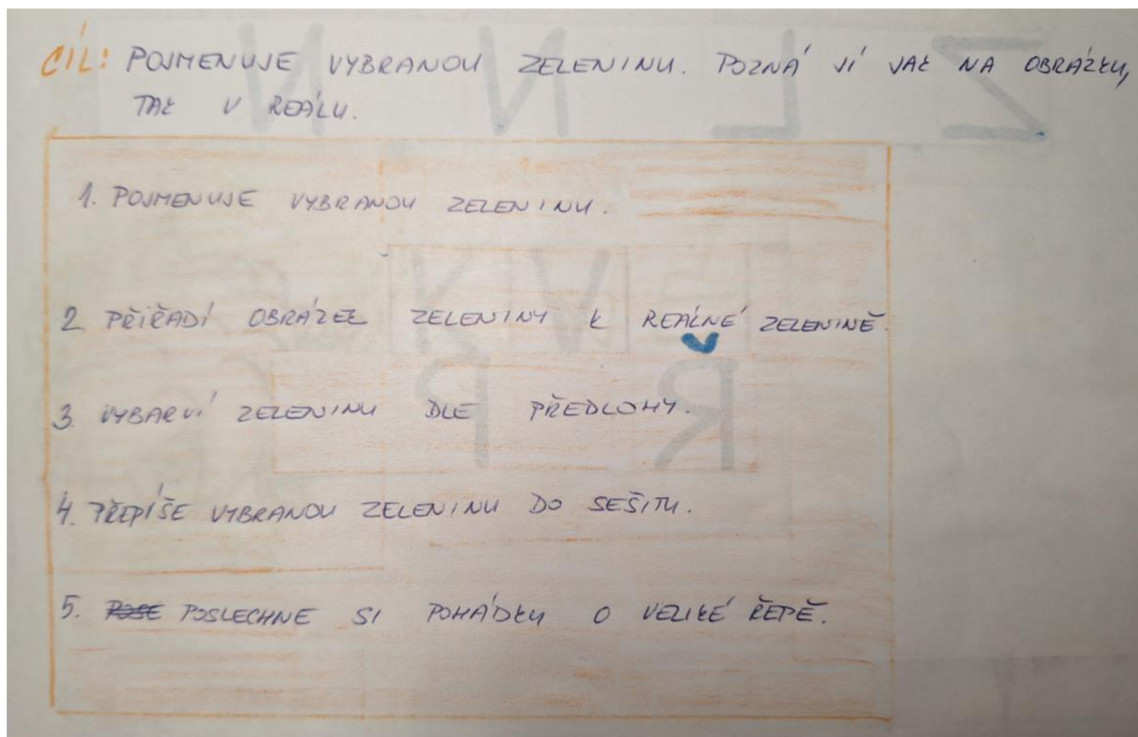 CÍL: POJMENUJE VYBRANOU ZELENINU. POZNÁ JÍ JAK NA OBRÁZKU,
TAK V REÁLU.
1. POJMENUJE VYBRANOU ZELENINU.
2. PŘIŘADÍ OBRÁZEK ZELENINY K REÁLNÉ ZELENINĚ.
3. VYBARVÍ ZELENINU DLE PŘEDLOHY.
4. PŘEPÍŠE VYBRANOU ZELENINU DO SEŠITU.
5. POSLECHNE SI POHÁDKU O VELIKÉ ŘEPĚ.